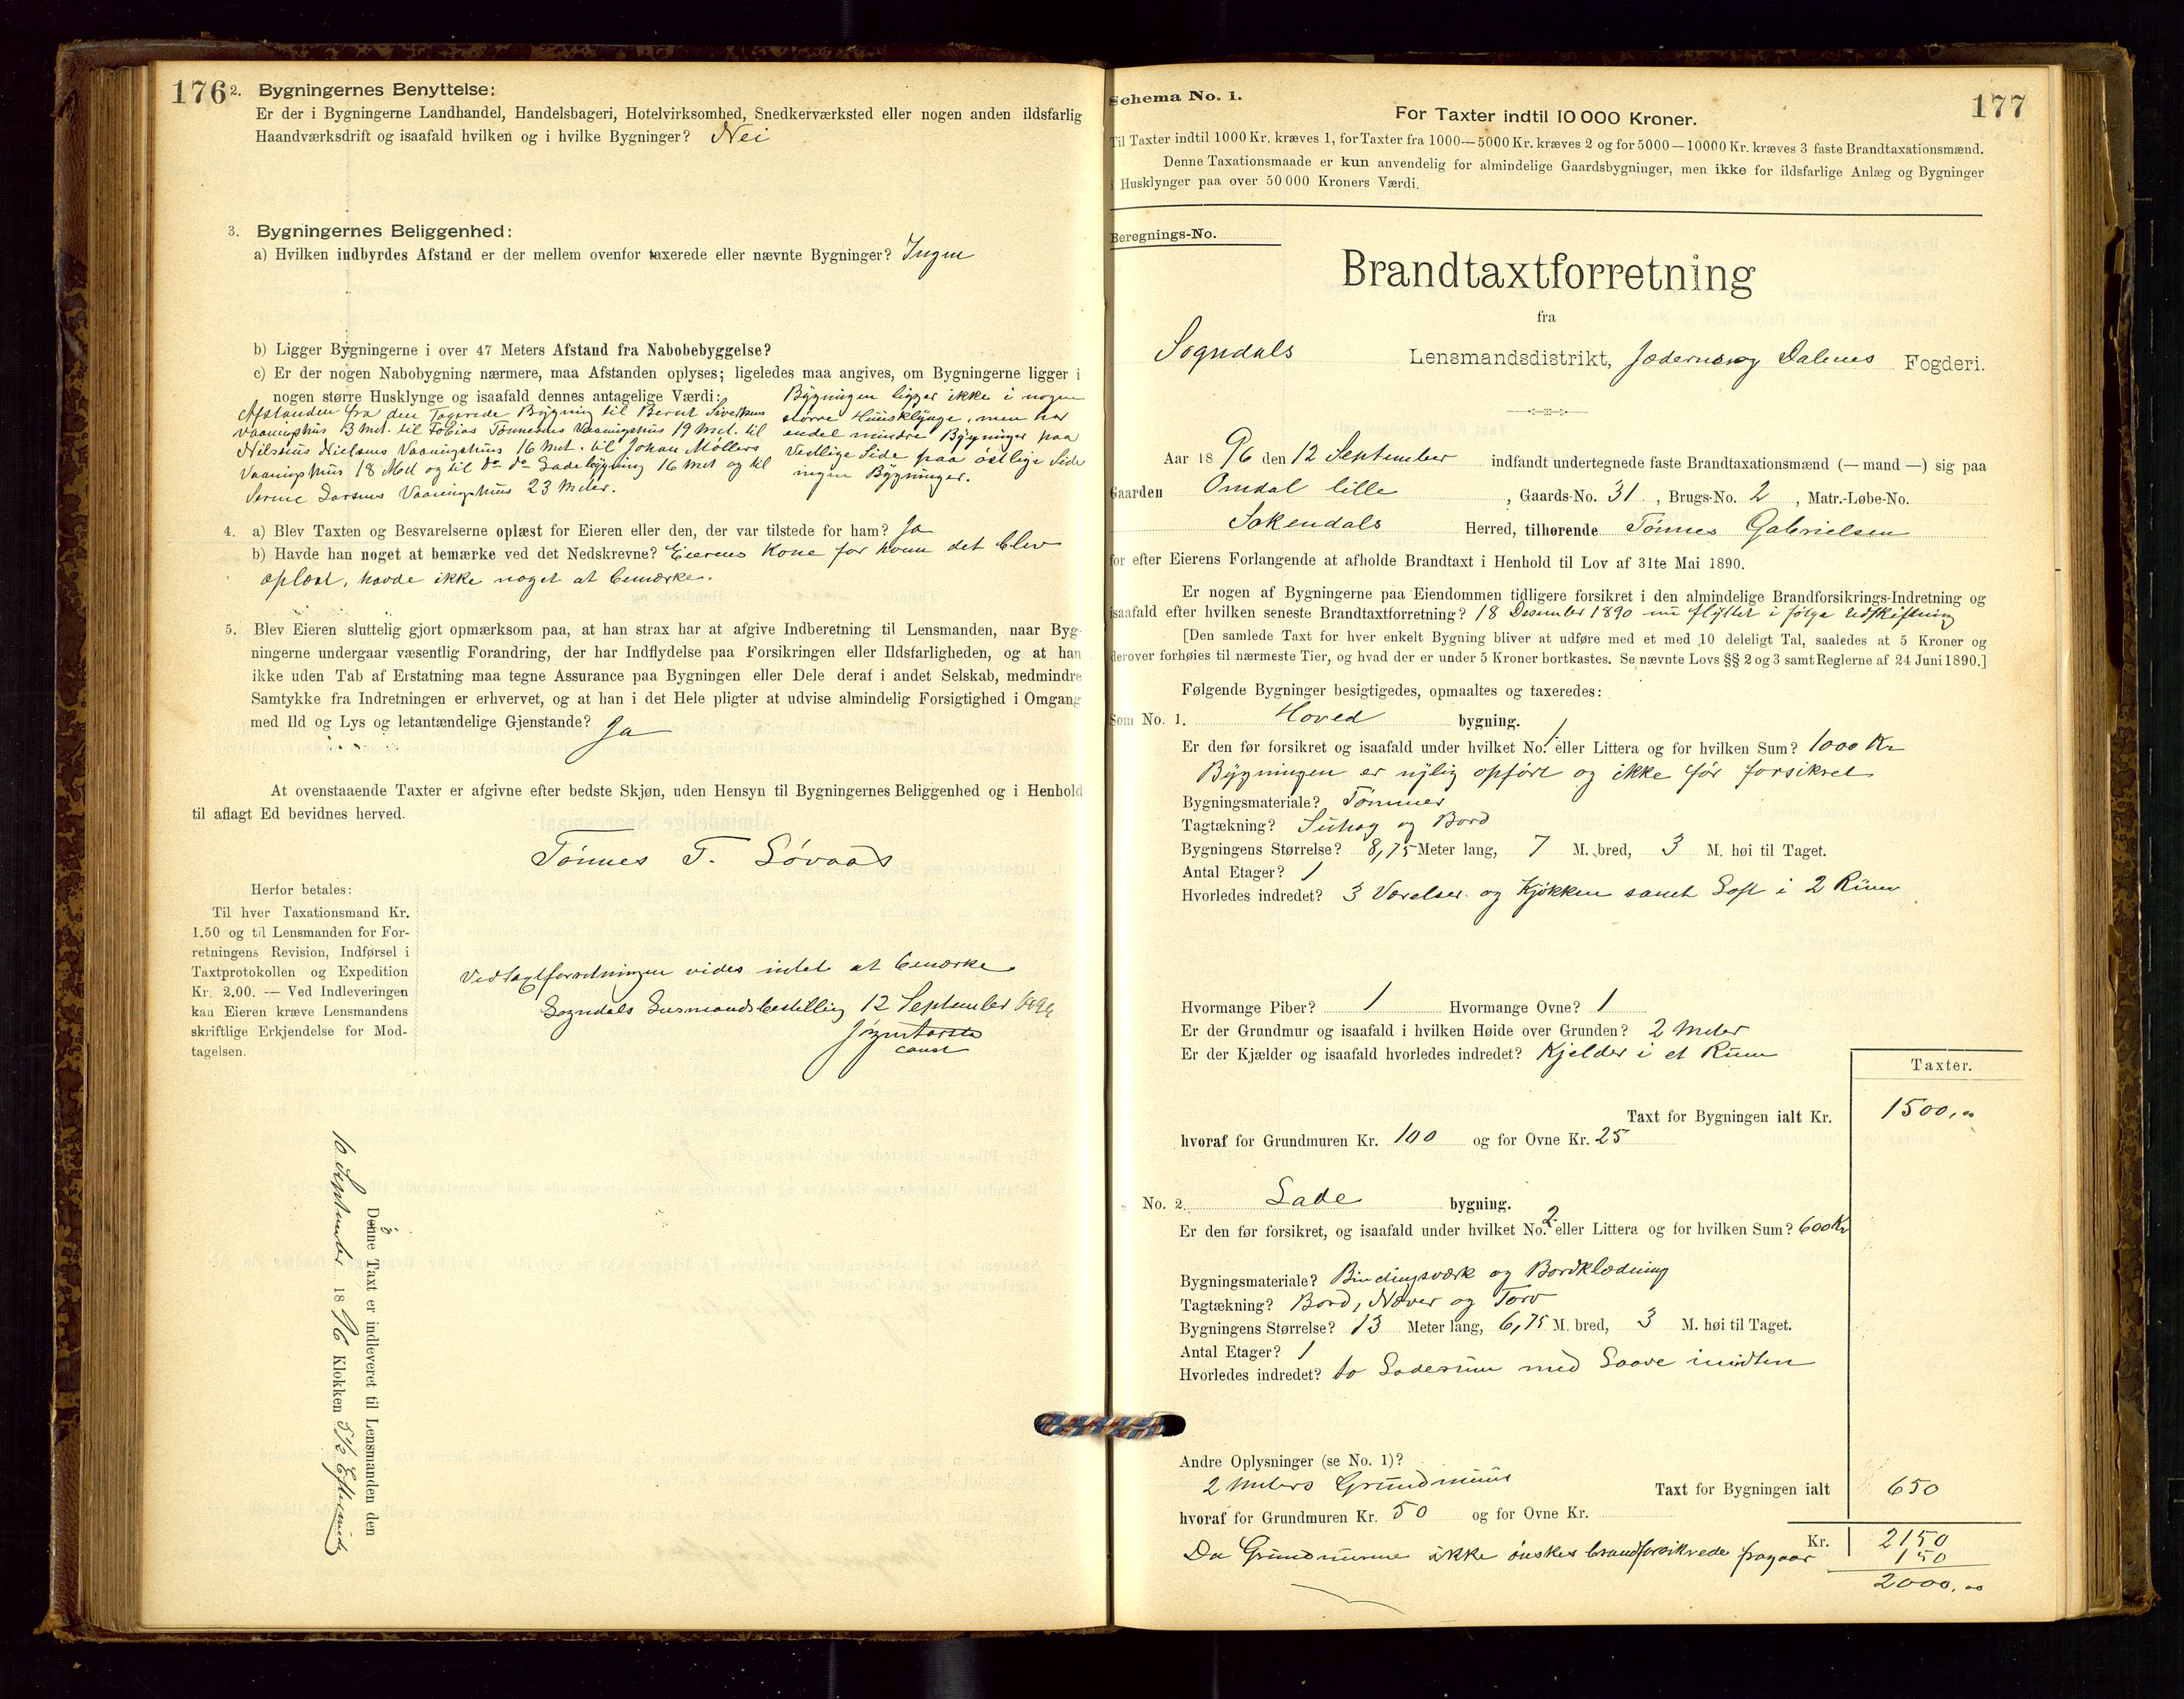 176
2. Bygningernes Benyttelse:
Er der i Bygningerne Landhandel, Handelsbageri, Hotelvirksomhed, Snedkerværksted eller nogen anden ildsfarlig
Haandværksdrift og isaafald hvilken og i hvilke Bygninger? Nei
3. Bygningernes Beliggenhed:
a) Hvilken indbyrdes Afstand er der mellem ovenfor taxerede eller nævnte Bygninger? Ingen
b) Ligger Bygningerne i over 47 Meters Afstand fra Nabobebyggelse?
c) Er der nogen Nabobygning nærmere, maa Afstanden oplyses; ligeledes maa angives, om Bygningerne ligger i
nogen større Husklynge og isaafald dennes antagelige Værdi:
Afstanden fra den Taxerede Bygning til Bernt
Vaaningshus 13 Met. til Tobias Tønnesens Vaaningshus 19 Met. til
Nilsens Nielsens Vaaningshus 16 Met. til Johan Møllers
Vaaningshus 18 Met og til do do Ladebygning 16 Met og til
Larsens Vaaningshus 23 Meter.
Bygningen ligger ikke i nogen
større Huusklynge, men har
endel mindre Bygninger paa
Vestlige Side paa østlige Side
ingen Bygninger.
4. a) Blev Taxten og Besvarelserne oplæst for Eieren eller den, der var tilstede for ham? Ja
b) Havde han noget at bemærke ved det Nedskrevne? Eierens Kone for hvem det blev
oplæst, havde ikke noget at bemærke.
5. Blev Eieren sluttelig gjort opmærksom paa, at han strax har at afgive Indberetning til Lensmanden, naar Byg-
ningerne undergaar væsentlig Forandring, der har Indflydelse paa Forsikringen eller Ildsfarligheden, og at han
ikke uden Tab af Erstatning maa tegne Assurance paa Bygningen eller Dele deraf i andet Selskab, medmindre
Samtykke fra Indretningen er erhvervet, og at han i det Hele pligter at udvise almindelig Forsigtighed i Omgang
med Ild og Lys og letantændelige Gjenstande? Ja
At ovenstaaende Taxter er afgivne efter bedste Skjøn, uden Hensyn til Bygningernes Beliggenhed og i Henhold
til aflagt Ed bevidnes herved.
Tønnes T. Løvaas
Herfor betales:
Til hver Taxationsmand Kr.
1.50 og til Lensmanden for For-
retningens Revision, Indførsel i
Taxtprotokollen og Expedition
Kr. 2.00. — Ved Indleveringen
kan Eieren kræve Lensmandens
skriftlige Erkjendelse for Mod-
tagelsen.
Ved Taxtforretningen vides intet at bemærke
Sogndals Lensmandsbestilling 12 September 1896
const
Denne Taxt er indleveret til Lensmanden den
16 September 1896 Klokken 5½ Eftermiddag
177
Schema No. 1.
For Taxter indtil 10 000 Kroner.
Til Taxter indtil 1000 Kr. kræves 1, for Taxter fra 1000—5000 Kr. kræves 2 og for 5000—10000 Kr. kræves 3 faste Brandtaxationsmænd.
Denne Taxationsmaade er kun anvendelig for almindelige Gaardsbygninger, men ikke for ildsfarlige Anlæg og Bygninger
i Husklynger paa over 50 000 Kroners Værdi.
Beregnings-No.
Brandtaxtforretning
fra
Sogndals Lensmandsdistrikt, Jæderen og Dalenes Fogderi.
Aar 1896 den 12 September indfandt undertegnede faste Brandtaxationsmænd (— mand —) sig paa
Gaarden Omdal lille, Gaards-No. 31, Brugs-No. 2, Matr.-Løbe-No.
Sokendals Herred, tilhørende Tønnes Gabrielsen
for efter Eierens Forlangende at afholde Brandtaxt i Henhold til Lov af 31te Mai 1890.
Er nogen af Bygningerne paa Eiendommen tidligere forsikret i den almindelige Brandforsikrings-Indretning og
isaafald efter hvilken seneste Brandtaxtforretning? 18 Desember 1890 nu flyttet i følge Udskiftning
[Den samlede Taxt for hver enkelt Bygning bliver at udføre med et med 10 deleligt Tal, saaledes at 5 Kroner og
derover forhøies til nærmeste Tier, og hvad der er under 5 Kroner bortkastes. Se nævnte Lovs §§ 2 og 3 samt Reglerne af 24 Juni 1890.]
Følgende Bygninger besigtigedes, opmaaltes og taxeredes:
Som No. 1. Hoved bygning.
Er den før forsikret og isaafald under hvilket No. 1 eller Littera og for hvilken Sum? 1000 Kr
Bygningen er nylig opført og ikke før forsikret
Bygningsmateriale? Tømmer
Tagtækning? Suhag og Bord
Bygningens Størrelse? 8,75 Meter lang, 7 M. bred, 3 M. høi til Taget.
Antal Etager? 1
Hvorledes indredet? 3 Værelser og Kjøkken samt Loft i 2 Rum
Hvormange Piber? 1 Hvormange Ovne? 1
Er der Grundmur og isaafald i hvilken Høide over Grunden? 2 Meter
Er der Kjælder og isaafald hvorledes indredet? Kjelder i et Rum
Taxter.
Taxt for Bygningen ialt Kr. 1500,00
hvoraf for Grundmuren Kr. 100 og for Ovne Kr. 25
No. 2. Lade bygning.
Er den før forsikret, og isaafald under hvilket No. 2 eller Littera og for hvilken Sum? 600 Kr
Bygningsmateriale? Bindingsværk og Bordklædning
Tagtækning? Bord, Næver og Torv
Bygningens Størrelse? 13 Meter lang, 6,75 M. bred, 3 M. høi til Taget.
Antal Etager? 1
Hvorledes indredet? to Laderum med Laave imidten
Andre Oplysninger (se No. 1)?
2 Meters Grundmuur Taxt for Bygningen ialt 650
hvoraf for Grundmuren Kr. 50 og for Ovne Kr.
Kr. 2150
Da Grundmurene ikke ønskes brandforsikrede fragaar 150
2000,00